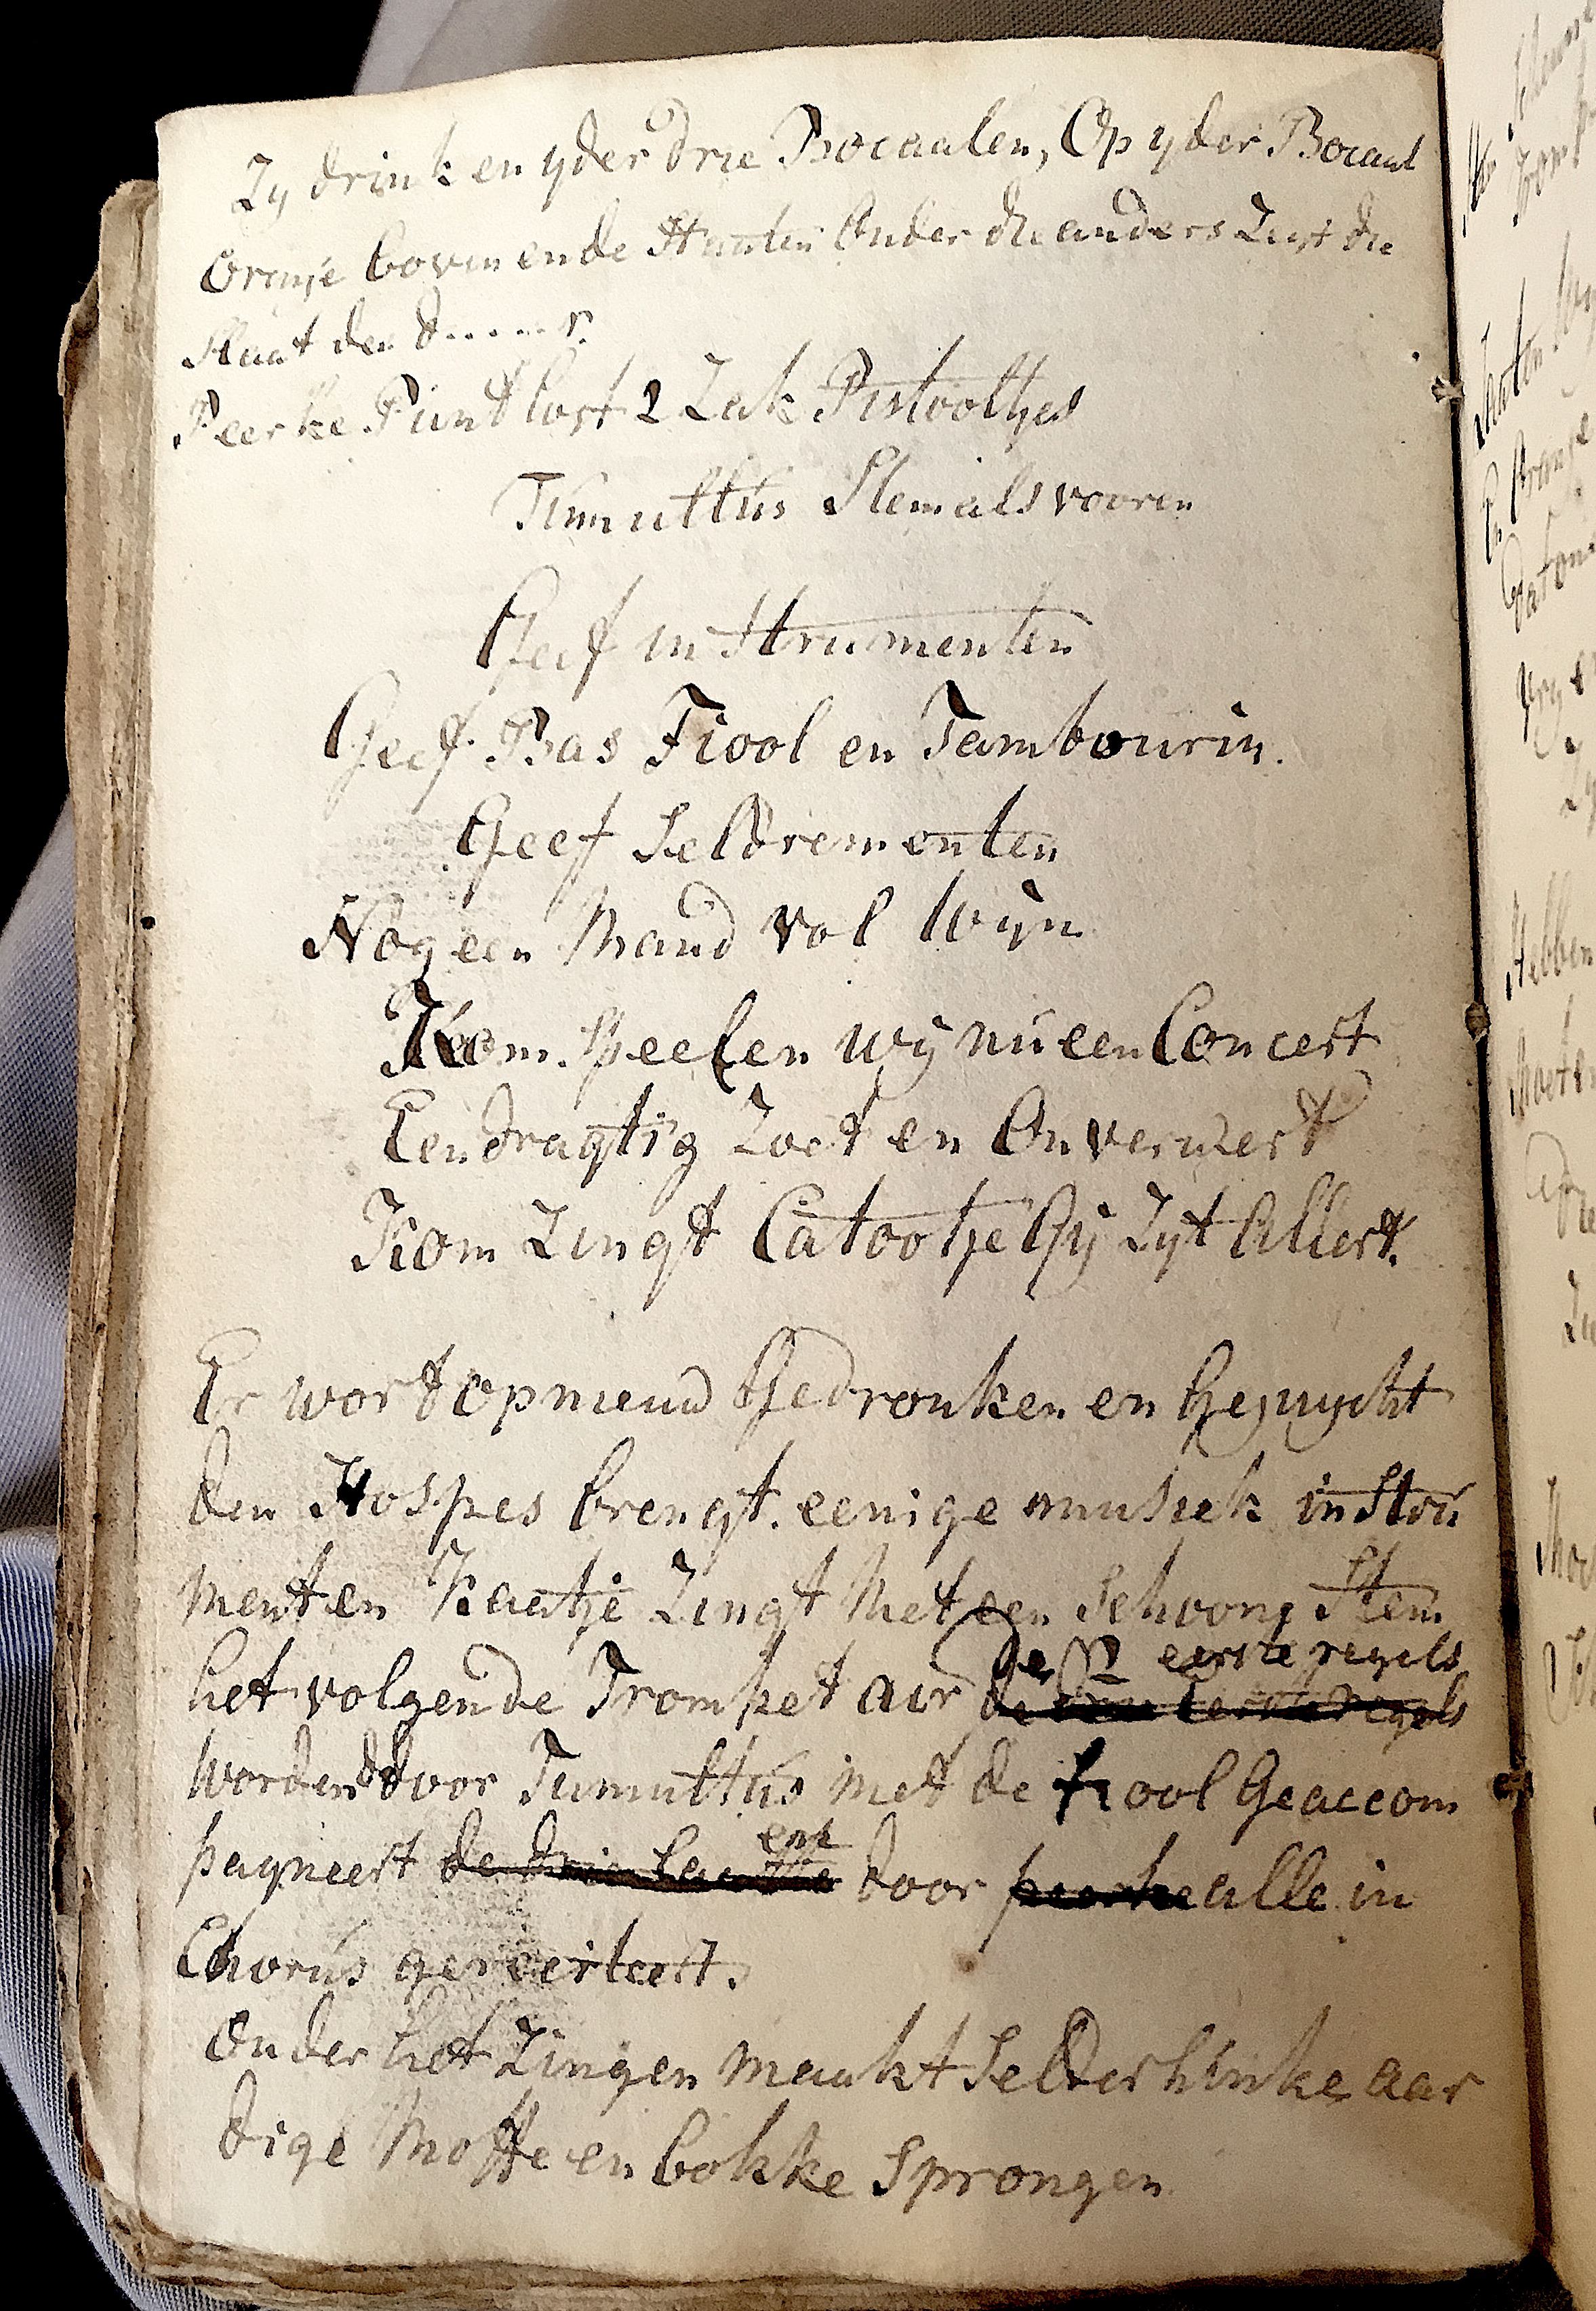 Zy drinken yder drie Bocaalen, Op yder Bocaal
Oranje boven en de Staaten Onder die anders Zegt die
Slaat den d......r.
Peerke Punt lost 2 Zak Pistooltjes
Tumultus Stem als vooren
Geef in Strumenten
Geef Bas Fiool en Tambourin.
Geef Seldrementen
Nog een Mand vol Wijn
Kom Speelen wij nu een Concert
Eendragtig Zoet en Onverwert
Kom Zingt Catootje Gij Zyt Allert.
Er wort op nieuw Gedronken en Gejuycht
den Hospes brengt eenige musiek in Stru
menten Kaatje Zingt Met een Schoone Stem
De eerste regels
het volgende Trompet air de eerste regels
Worden door Tumultus met de fiool Geaccom
pagneert de drie laatste door peerke alle in
Chorus gereciteert.
Onder het Zingen maakt Selderhinke aar
dige Moffe en bokke Sprongen